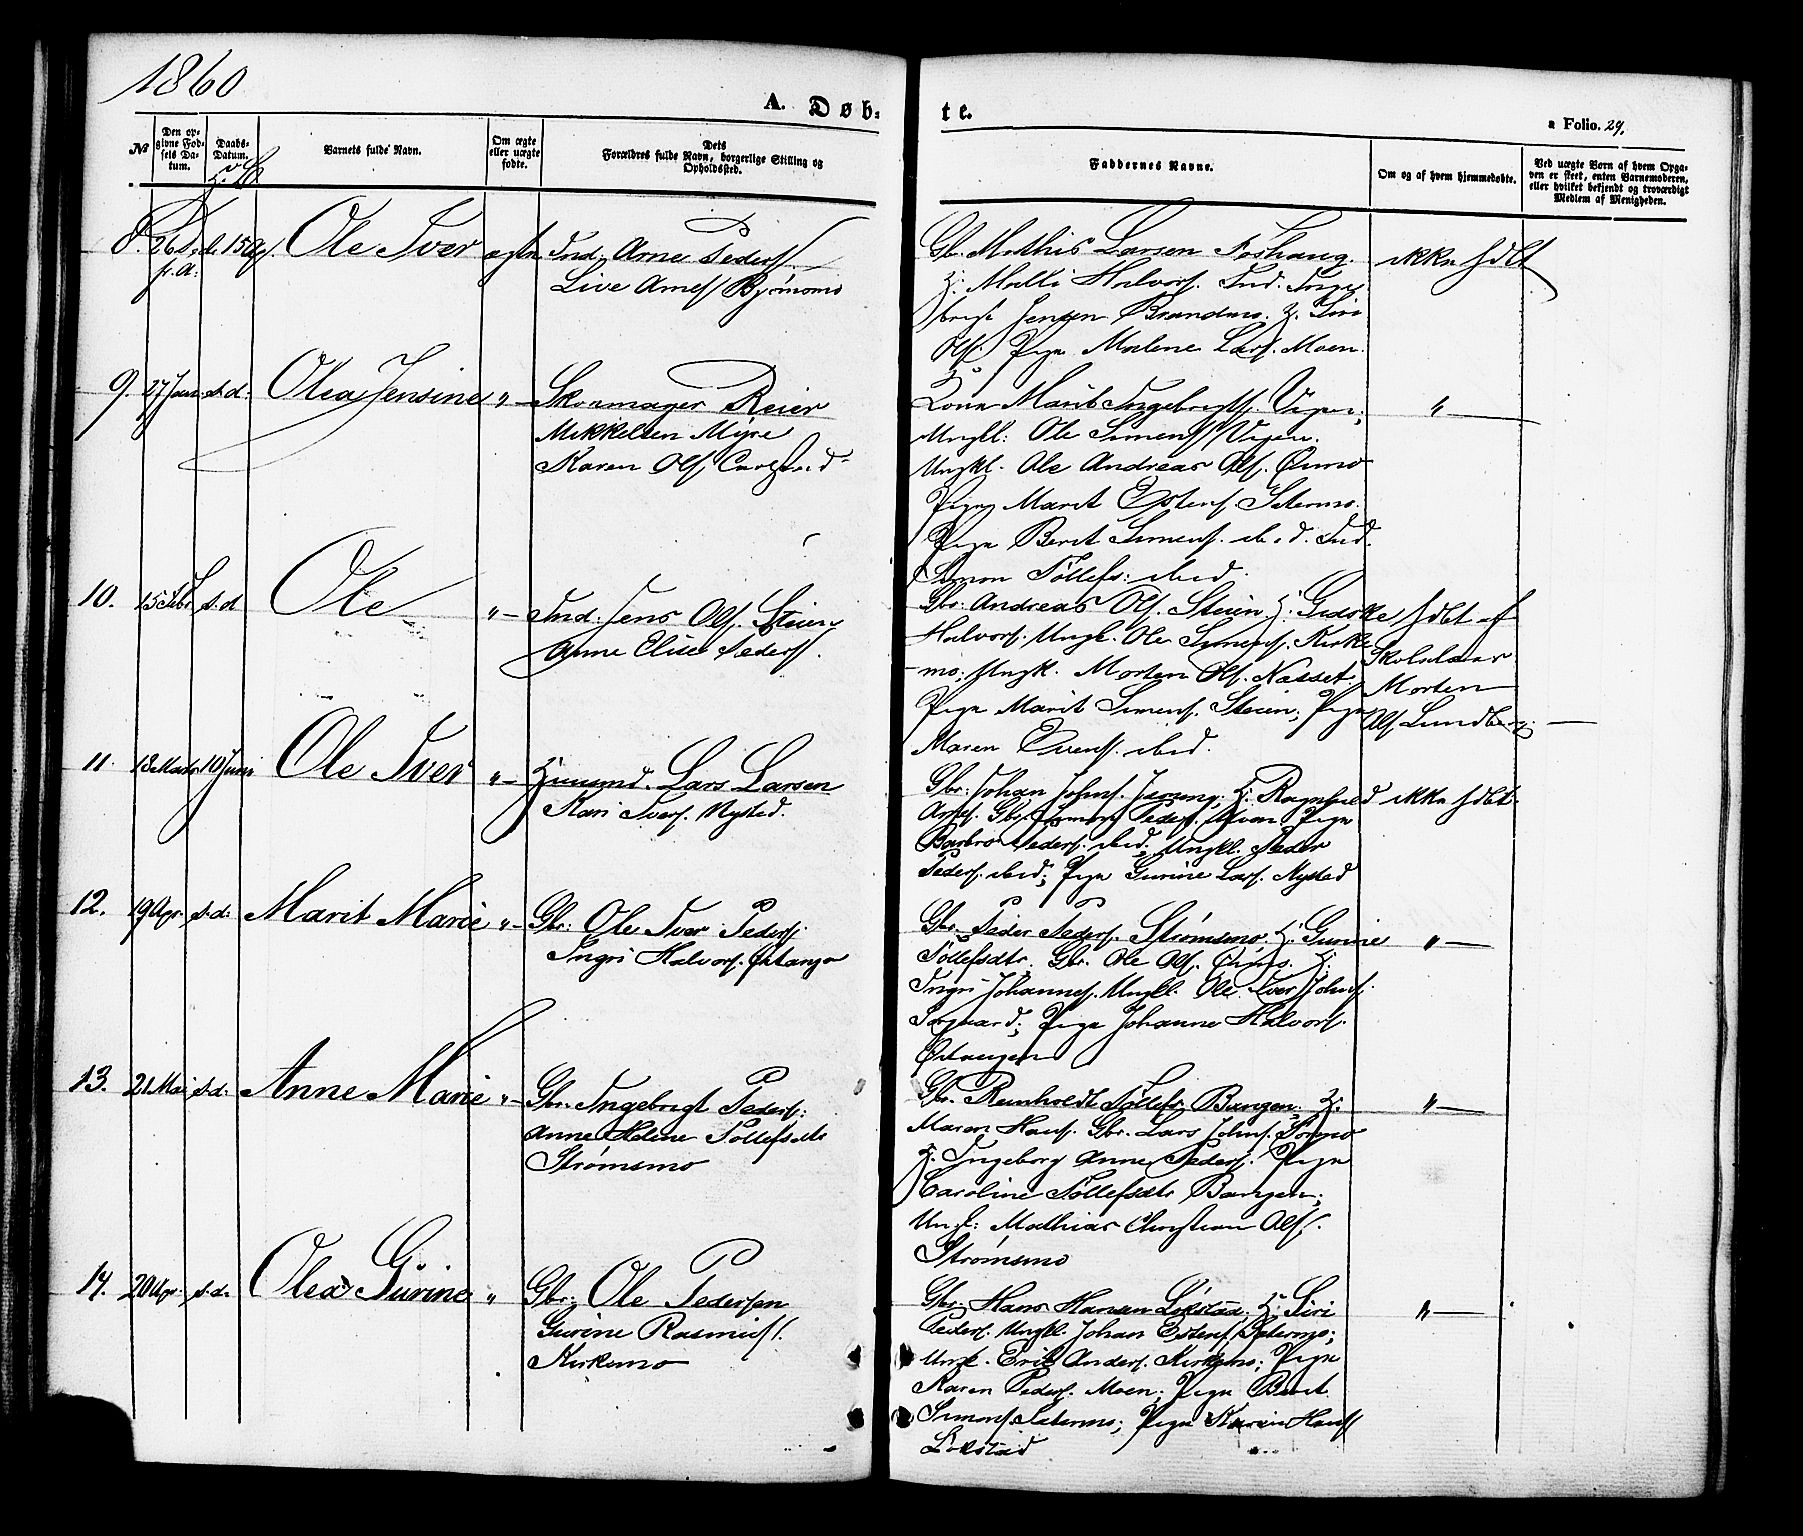 1860
A. Døb-
te.
a Folio. 29.
№
Den op-
givne Fød-
sels Da-
tum.
Daabs-
Datum.
Barnets fulde Navn.
Om ægte
eller uægte
fødte.
Dets
Forældres fulde Navn, borgerlige Stilling og
Opholdssted.
Faddernes Navne.
Om og af hvem hjemmedøbte.
Ved uægte Børn af hvem Opga-
ven er skeet, enten Barnemoderen,
eller hvilket bekjendt og troværdigt
Medlem af Menigheden.
8. 26 D. f.A. 15 Apr. Ole Iver ægte Ind. Arne Peders.
Live Arnes. Bjørnmo
Gb. Mathis Larsen Foshaug.
H. Malli Halvors. Ind. Inge
brigt Jensen Brandmo. H. Siri
Ols. Pige Malene Lars. Moen.
ikke hdbt
9. 27 Jan. s.d. Olea Jensine "— Skomager Reier
Mikkelsen Myre
Karen Ols.
Kona Marit Ingebrigts. Vigen;
Ungkl: Ole Simens. Vigen.
Ungkl. Ole Andreas Ols. Øvmo
Pige Marit Estens. Setermo.
Pige Berit Simens. ibid. Ind.
Simon Tollefs: ibid.
"—
10. 15 Febr. s.d. Ole "— Ind. Jens Ols. Steien
Anne Elise Peders.
Gbr: Andreas Ols. Steien H. Gidske
Halvors. Ungk. Ole Simens. Kirke
mo; Ungk. Morten Ols. Næsset.
Pige Marit Simens. Steien; Pige
Maren Evens. ibid.
hdbt af
Skolelær
Morten
Ols. Lundberg. —
11. 13 Marts 10 Juni Ole Iver "— Huusmd. Lars Larsen
Kari Ivers. Nysted.
Gbr: Johan Johns. H. Ragnhild
Arnes. Gbr. Simon Peders. Pige
Barbro Peders. ibid; Ungkl. Peder
Peders. ibid; Pige Gurine Lars. Nysted
ikke hdbt.
12. 19 Apr. s.d. Marit Marie "— Gbr: Ole Iver Peders.
Ingri Halvors. Østange
Gbr. Peder Peders. Strømsmo; H. Gurine
Tollefsdtr. Gbr. Ole Ols. H.
Ingri Johannes. Ungkl. Ole Iver Johns.
Pige Johanne Halvors.
Østangen
"—
13. 21 Mai s.d. Anne Marie "— Gbr: Ingebrigt Peders:
Anne Helene Tollefsdtr
Strømsmo
Gbr. Reinholdt Tollefs. Bangen; H.
Maren Hans. Gbr. Lars Johns. Sørmo
H. Ingeborg Anne Peders. Pige
Caroline Tollefsdtr Bangen;
Ungk: Mathias Christian Ols.
Strømsmo
"—
14. 20 Apr. s.d. Olea Gurine " Gbr: Ole Pedersen
Gurine Rasmus.
Kirkemo
Gbr. Hans Hansen Løkstad. H. Siri
Peders. Ungkl. Johan Estens. Setermo;
Ungk. Erik Anders. Kirkemo; Pige
Karen Peders. Moen; Pige Berit
Simons. Setermo; Pige Karen Hans.
Løkstad
"—